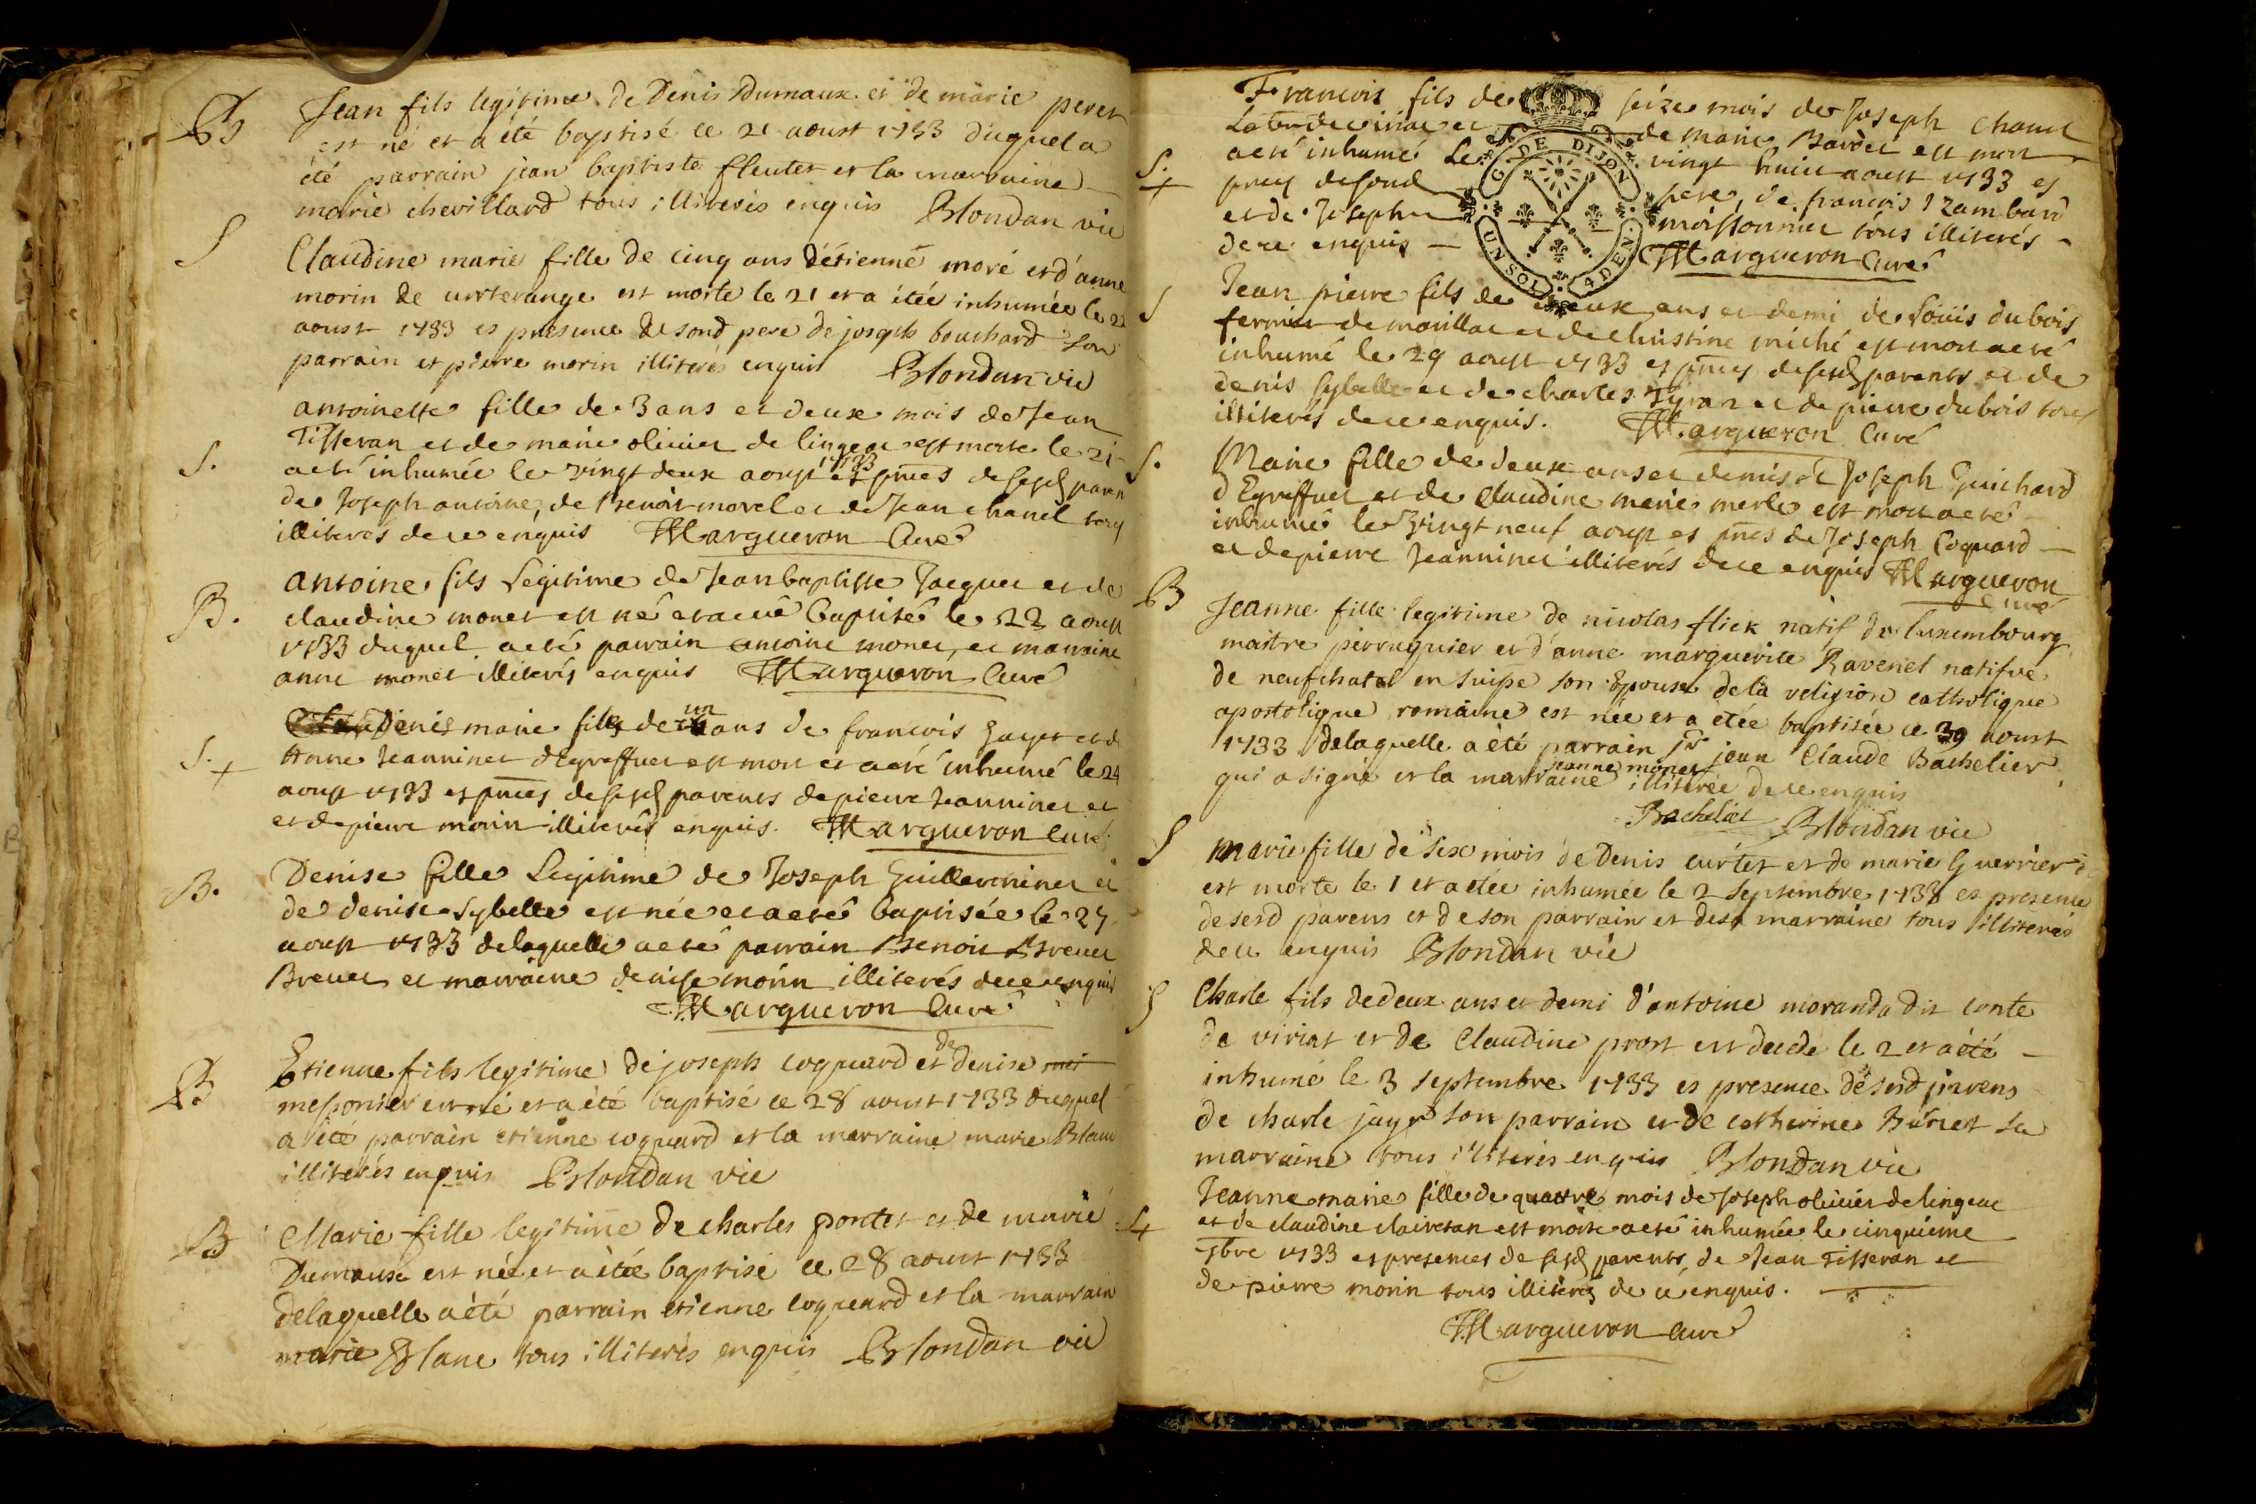 B Jean fils legitime de Denis Dumaux et de marie peret
est né et a été baptisé le 21 aoust 1733 duquel a
été parrain jean baptiste fleutet et la marraine
marie chevillard tous illiterés enquis Blondan vic
S Claudine marie fille de cinq ans détienne moré et d'anne
morin de curterange est morte le 21 et a étée inhumée le 22
aoust 1733 es presence de sond pere de joseph bouchard son
parrain et pierre morin illiterés enquis Blondan vic
antoinette fille de 3 ans et deux mois de Jean
Tisseran et de marie olivier de lingeac est morte le 21
S. a eté inhumée le vingt deux aoust 1733 es pnces de sesd paren
de Joseph antoine, de benoit morel et de Jean chanel tous
illiterés de ce enquis Margueron Curé
antoine fils Legitime de Jean baptiste Jacquet et de
B. claudine monet est né et a eté baptisé le 22 aoust
1733 duquel a eté parrain antoine monet, et marraine
anne monet illiterés enquis Margueron Curé
Denis marie fils de un ans de francois Jayet et d
S. + Anne Jeanninet d'Egreffuet est mort et a eté inhumé le 24
aoust 1733 es pnces de sesd parents de pierre Jeanninet et
et de pierre morin illiterés enquis. Margueron Curé
Denise fille Legitime de Joseph Guillerminet et
B. de denise Sybelle est née et a eté baptisée le 27
aoust 1733 de laquelle a eté parrain Benoit Brevet
Brevet et marraine denise morin illiterés de ce enquis
Margueron Curé
Etienne fils legitime de joseph coquard et de denise
B messonier est né et a été baptisé ce 28 aoust 1733 duquel
a été parrain etienne coquard et la marraine marie Blanc
illiterés enquis Blondan vic
B Marie fille legitime de charles pontet et de marie
Dumaux est née et a étée baptisé ce 28 aoust 1733
delaquelle a été parrain etienne coquard et la marrain
marie Blanc tous illiterés enquis Blondan vic
Francois fils de seize mois de Joseph Chanel
et de Marie Bardet est mort
S. + a eté inhumé Le vingt huit aoust 1733 es
pnces desond pere, de francois Izambard
et de Joseph moissonnier tous illiterés
de ce enquis Margueron Curé
G. DE DIJON
UN SOL 4 DEN.
S Jean pierre fils de deux ans et demi de Loüis dubois
fermier de marillac et de christine miché est mort a eté
inhumé le 29 aoust 1733 es pnces de sesd parents et de
denis Sybelle et de charles Tyran et de pierre dubois tous
illiterés de ce enquis. Margueron Curé
S. Marie fille de deux ans et demis de Joseph Guichard
d'Egreffuet et de claudine marie merle est mort a eté
inhumé le vingt neuf aoust es pnces de Joseph Coquard
et de pierre Jeanninet illiterés de ce enquis Margueron
Curé
B Jeanne fille legitime de nicolas fliek natif de luxembourg
maitre perruquier et d'anne marguerite Ravenel natifve
de neufchatel en suisse son Epouse de la religion catholique
apostolique romaine est née et a étée baptisée ce 30 aoust
1733 delaquelle a été parrain sr jean Claude Bachelier
qui a signé et la marraine jeanne monet illiterée de ce enquis
Bachelier Blondan vic
S marie fille de six mois de Denis curtet et de marie Guerrier
est morte le 1 et a étée inhumée le 2 septembre 1733 es presence
de sesd parens et de son parrain et de sa marraine tous illiterés
de ce enquis Blondan vic
S Charle fils de deux ans et demi d'antoine moranda dit conte
de viriat et de Claudine prost est decedé le 2 et a été
inhumé le 3 septembre 1733 es presence de sesd parens
de charle jayr son parrain et de catherine Buret sa
marraine tous illiterés enquis Blondan vic
Jeanne marie fille de quattre mois de Joseph olivier de lingeac
S + et de claudine clairetan est morte a eté inhumée le cinquieme
7bre 1733 es presences de sesd parents, de Jean Tisseran et
de pierre morin tous illiterés de ce enquis.
Margueron Curé